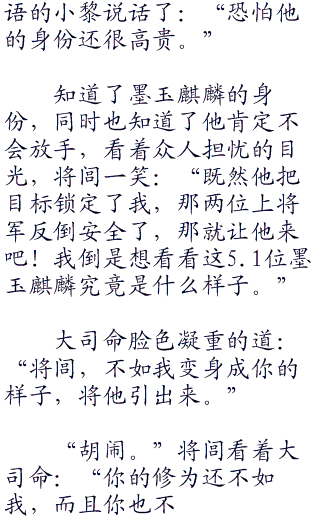 语的小黎说话了：“恐怕他
的身份还很高贵。”
知道了墨玉麒麟的身
份，同时也知道了他肯定不
会放手，看着众人担忧的目
光，将闾一笑：“既然他把
目标锁定了我，那两位上将
军反倒安全了，那就让他来
吧！我倒是想看看这5.1位墨
玉麒麟究竟是什么样子。”
大司命脸色凝重的道：
“将闾，不如我变身成你的
样子，将他引出来。”
“胡闹。”将闾看着大
司命：“你的修为还不如
我，而且你也不